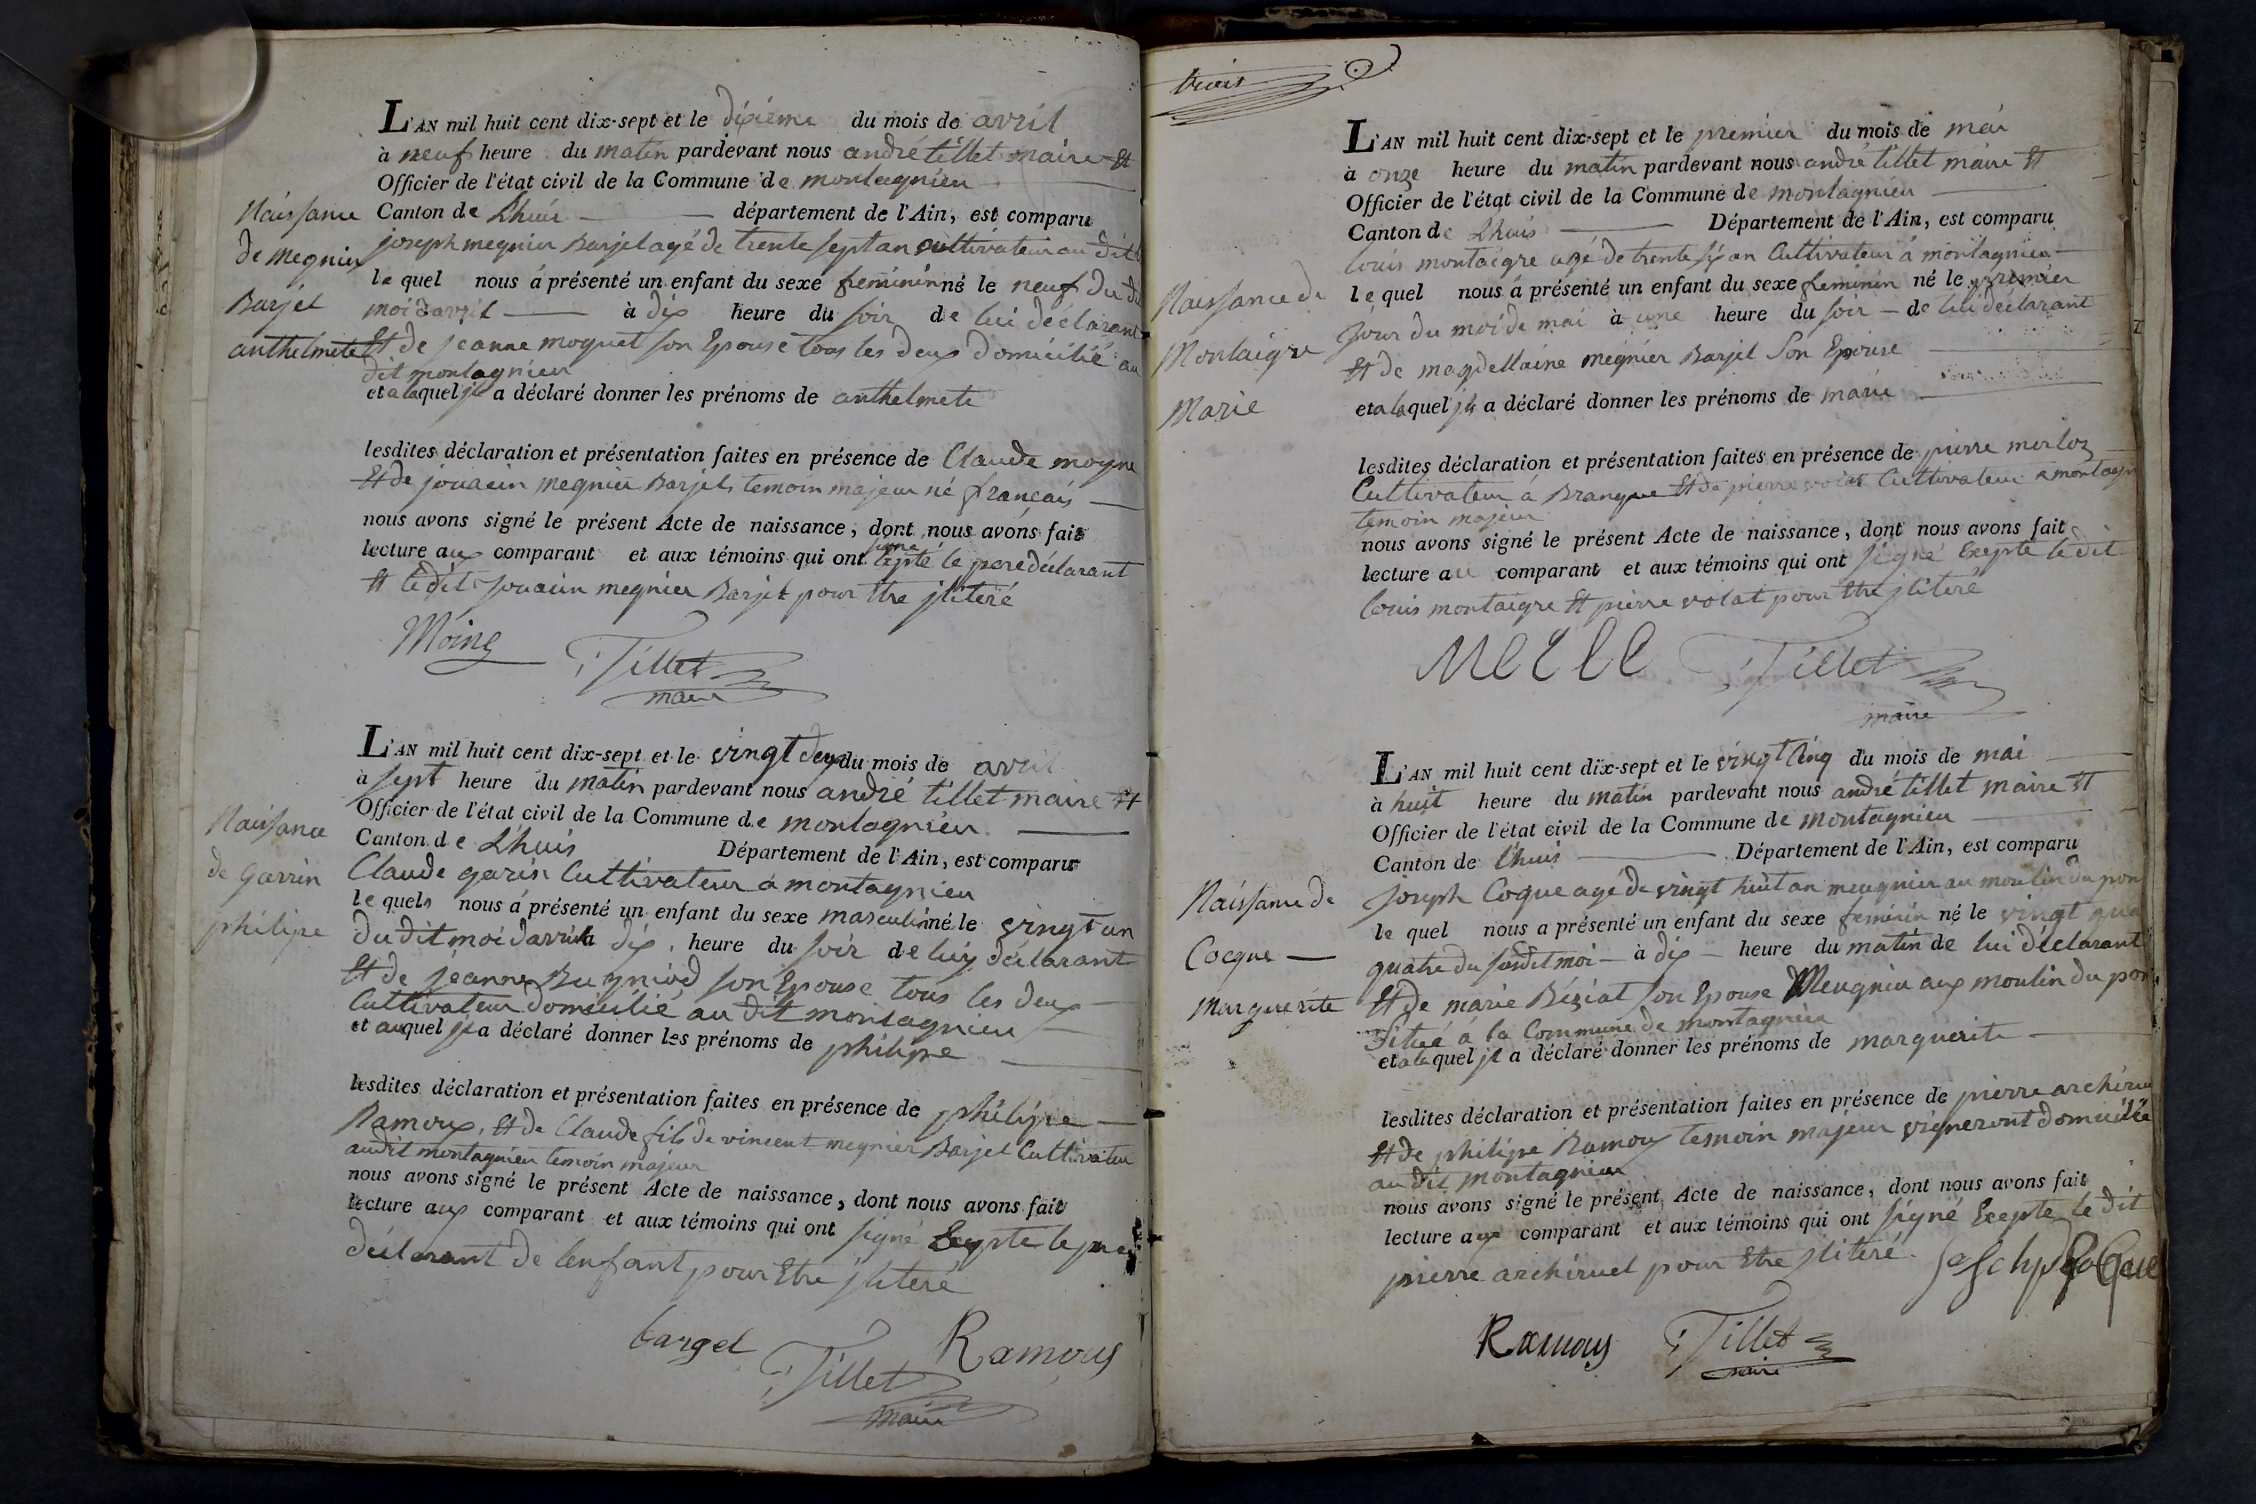 L'AN mil huit cent dix-sept et le dixième du mois de avril
à neuf heure du matin pardevant nous andré tillet maire Et
Officier de l'état civil de la Commune de montagnieu
Naissance
de megnier
Barjet
anthelmete
Canton de Lhuis département de l'Ain, est comparu
joseph megnier Barjet agé de trente sept an cultivateur au dit
le quel nous á présenté un enfant du sexe feminin né le neuf du du
moi d'avril à dix heure du soir de lui déclarant
Et de jeanne moquet son Epouse tous les deux domicilié au
dit montagnieu
et a laquel jl a déclaré donner les prénoms de anthelmete
lesdites déclaration et présentation faites en présence de Claude moyne
Et de jouacin megnier Barjet temoin majeur né français
nous avons signé le présent Acte de naissance, dont nous avons fait
lecture aux comparant et aux témoins qui ont signé
cepté le pere déclarant
Et le dit jouacin megnier Barjet pour Etre jliteré
Moine
Tillet
maire
L'AN mil huit cent dix-sept et le vingt deux du mois de avril
à sept heure du matin pardevant nous andré tillet maire Et
Officier de l'état civil de la Commune de montagnieu
Naissance
de Garrin
philipe
Canton de Lhuis Département de l'Ain, est comparu
Claude garin Cultivateur á montagnieu
le quels nous á présenté un enfant du sexe masculin né le vingt un
du dit moi d'avril à dix heure du soir de luy déclarant
Et de jeanne Bugniod son Epouse tous les deux
Cultivateur domicilié au dit montagnieu
et auquel jl a déclaré donner les prénoms de philipe
lesdites déclaration et présentation faites en présence de philipe
Ramoux, Et de Claude fils de vincent megnier Barjet Cultivateur
audit montagnieu temoin majeur
nous avons signé le présent Acte de naissance, dont nous avons fait
lecture aux comparant et aux témoins qui ont signé Exepte le pere
déclarant de l'enfant pour Etre jliteré
bargel
Ramoux
Tillet
maire
trois
L'AN mil huit cent dix-sept et le premier du mois de mai
à onze heure du matin pardevant nous andré tillet maire Et
Officier de l'état civil de la Commune de montagnieu
Naissance de
Montaigre
Marie
Canton de Lhuis Département de l'Ain, est comparu
Louis montaigre agé de trente six an Cultivateur á montagnieu
le quel nous á présenté un enfant du sexe feminin né le premier
jour du moi de mai à une heure du soir de lui déclarant
Et de magdellaine megnier Barjet Son Epouse
et a laquel jl a déclaré donner les prénoms de marie
lesdites déclaration et présentation faites en présence de pierre merloz
Cultivateur á Brangue Et de pierre volat Cultivateur a montagn
temoin majeur
nous avons signé le présent Acte de naissance, dont nous avons fait
lecture au comparant et aux témoins qui ont signé Exepté le dit
Louis montaigre Et pierre volat pour Etre jliteré
Tillet
maire
L'AN mil huit cent dix-sept et le vingt Cinq du mois de mai
à huit heure du matin pardevant nous andré tillet maire Et
Officier de l'état civil de la Commune de montagnieu
Naissance de
Cocque
Marguerite
Canton de L'huis Département de l'Ain, est comparu
joseph Coque agé de vingt huit an meugnier au moulin du pon
le quel nous a présenté un enfant du sexe feminin né le vingt qua
quatre du susdit moi à dix heure du matin de lui déclarant
Et de marie Béziat son Epouse Meugnier aux moulin du pon
Situé á la Commune de montagnieu
et a la quel jl a déclaré donner les prénoms de marguerite
lesdites déclaration et présentation faites en présence de pierre
Et de philipe Ramoux temoin majeur vigneront domicilié
au dit montagnieu
nous avons signé le présent Acte de naissance, dont nous avons fait
lecture aux comparant et aux témoins qui ont signé Exepte le dit
pierre archiruel pour Etre jliteré
Ramoux
Tillet
maire